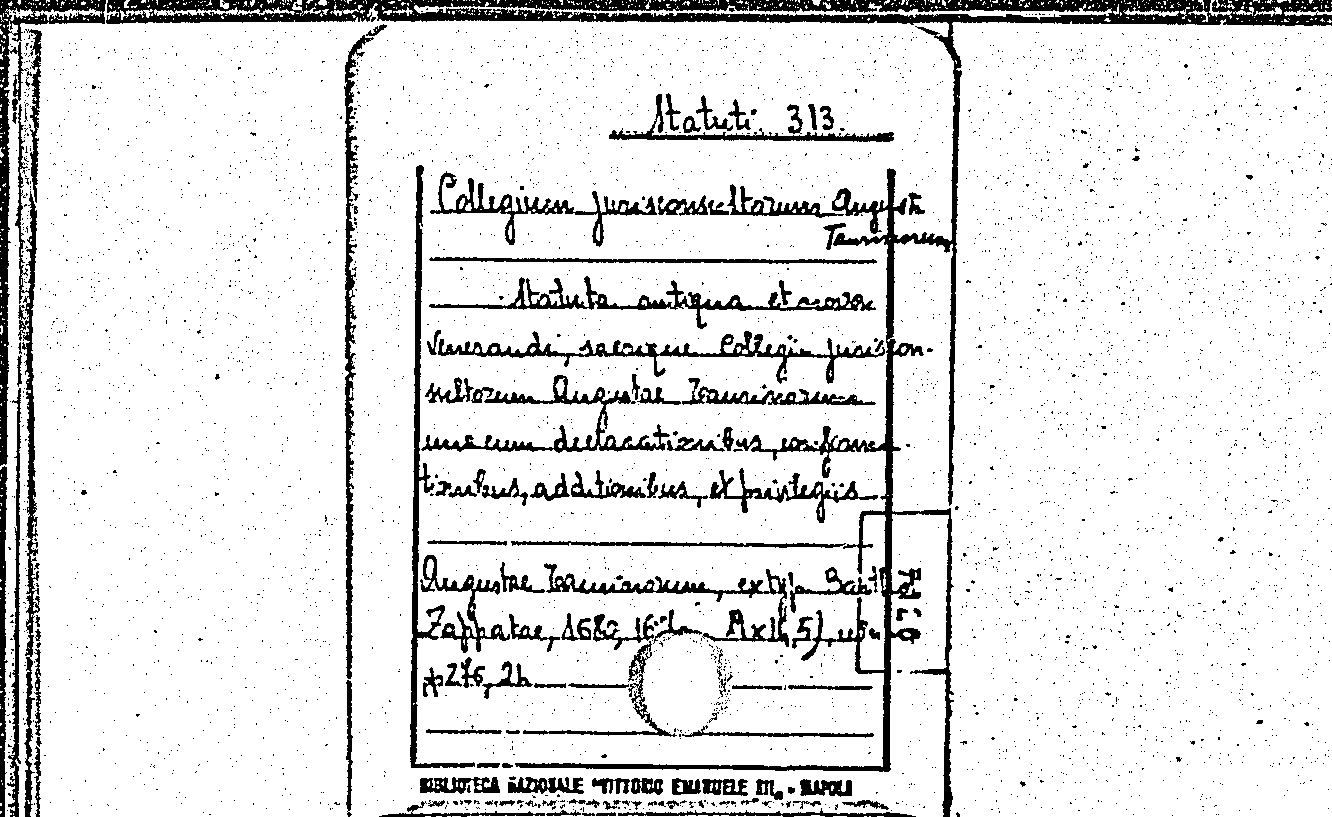 Statuti 313.
Collegium Jurisconsultorum Augustae
Taurinorum
Statuta antiqua et nova
venerandi, sacrique Collegii Juriscon-
sultorum Augustae Taurinorum
una cum declarationibus, confirma-
tionibus, additionibus, et privilegiis
Augustae Taurinorum, ex typ. Bart.
Zappatae, 1682, 16
p 276, 2h
BIBLIOTECA NAZIONALE "VITTORIO EMANUELE III" - NAPOLI